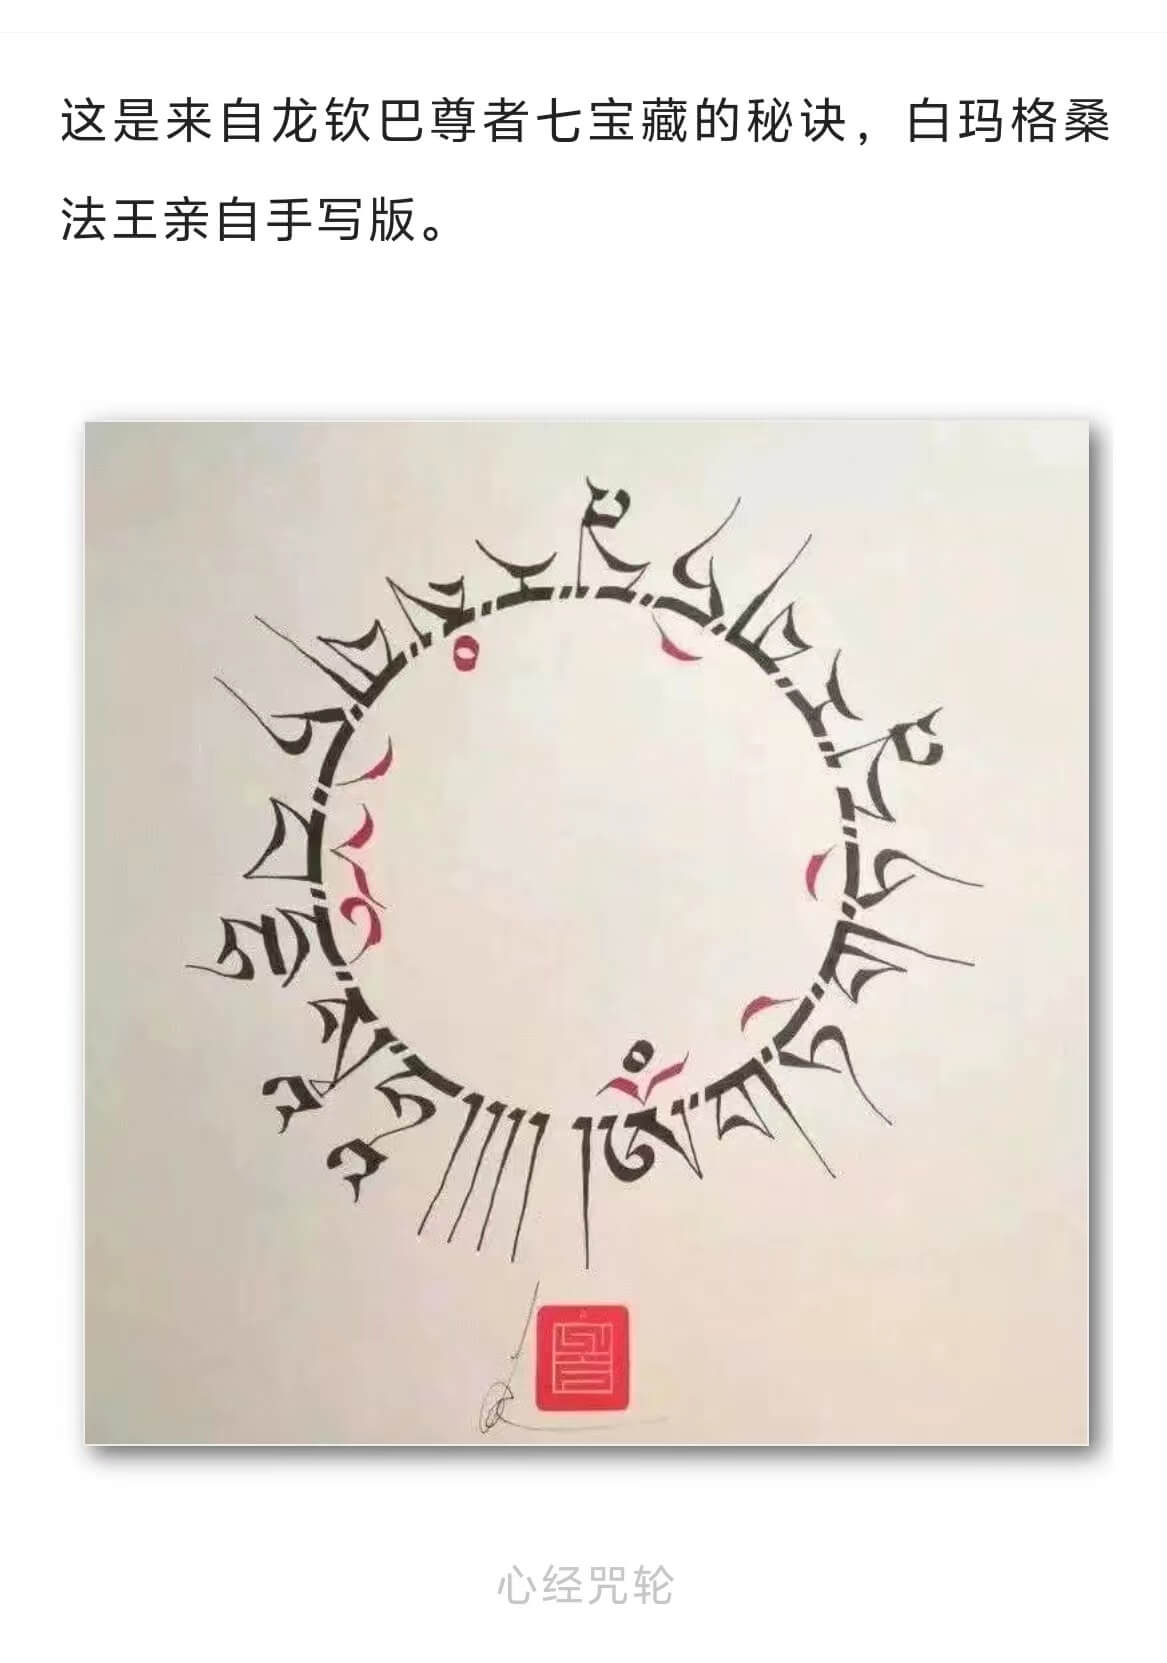 这是来自龙钦巴尊者七宝藏的秘诀，白玛格桑
法王亲自手写版。
།ཨོཾ་ག་ཏེ་ག་ཏེ་པཱ་ར་ག་ཏེ་པཱ་ར་སཾ་ག་ཏེ་བོ་དྷི་སྭཱ་ཧཱ།།།།
心经咒轮